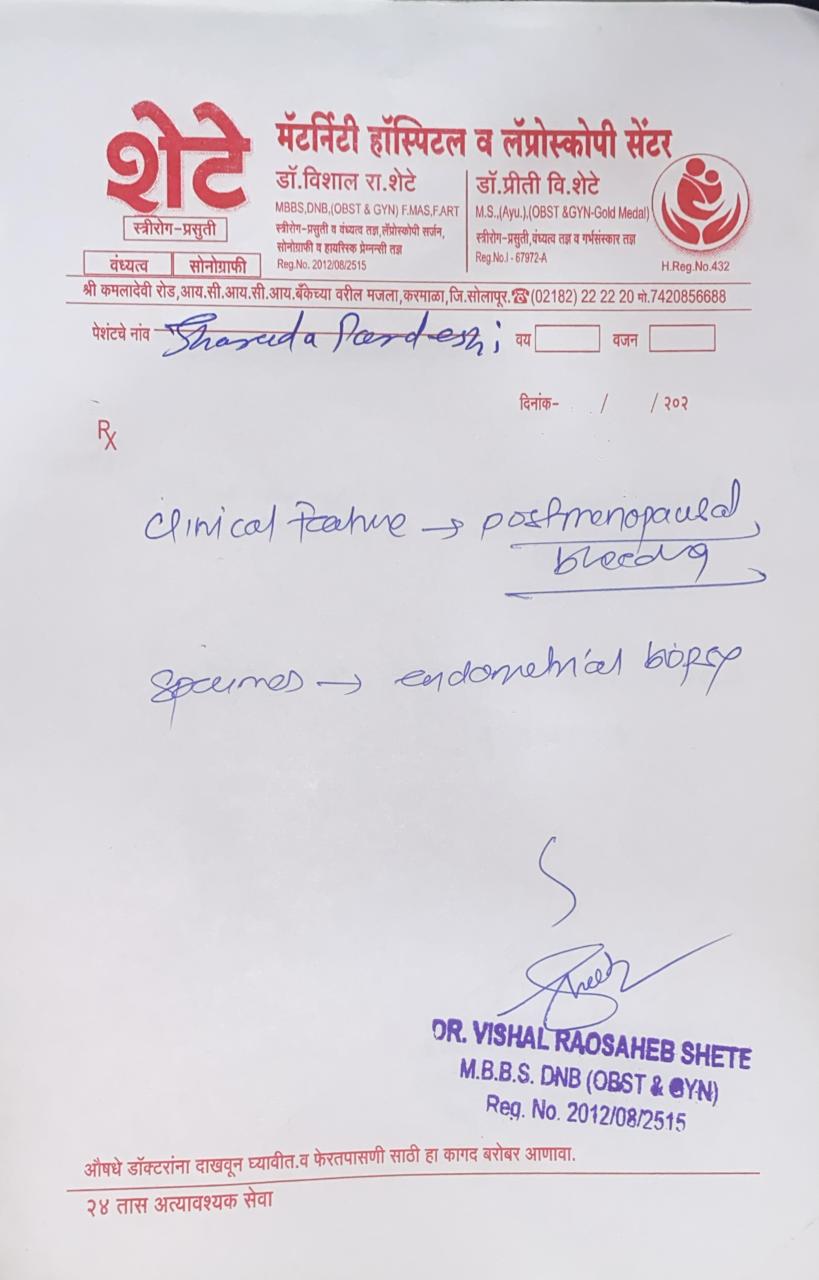 शेटे
स्त्रीरोग-प्रसुती
वंध्यत्व सोनोग्राफी
मॅटर्निटी हॉस्पिटल व लॅप्रोस्कोपी सेंटर
डॉ.विशाल रा.शेटे
MBBS,DNB,(OBST & GYN) F.MAS,F.ART
स्त्रीरोग-प्रसुती व वंध्यत्व तज्ञ,लॅप्रोस्कोपी सर्जन,
सोनोग्राफी व हायरिस्क प्रेग्नन्सी तज्ञ
Reg.No. 2012/08/2515
डॉ.प्रीती वि.शेटे
M.S.,(Ayu.),(OBST &GYN-Gold Medal)
स्त्रीरोग-प्रसुती,वंध्यत्व तज्ञ व गर्भसंस्कार तज्ञ
Reg.No.I - 67972-A
H.Reg.No.432
श्री कमलादेवी रोड,आय.सी.आय.सी.आय.बँकेच्या वरील मजला,करमाळा,जि.सोलापूर.☎(02182) 22 22 20 मो.7420856688
पेशंटचे नांव Sharada Pardeshi वय वजन
दिनांक- / / २०२
Rx
Clinical Feature → postmenopausal
bleeding
specimes → endometrial biopsy
DR. VISHAL RAOSAHEB SHETE
M.B.B.S. DNB (OBST & GYN)
Reg. No. 2012/08/2515
औषधे डॉक्टरांना दाखवून घ्यावीत.व फेरतपासणी साठी हा कागद बरोबर आणावा.
२४ तास अत्यावश्यक सेवा